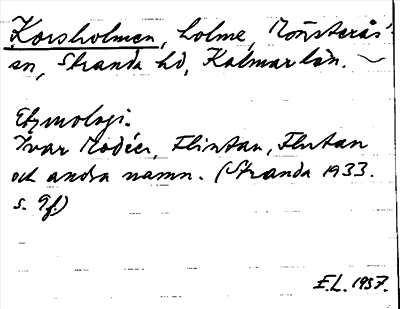 Korsholmen, holme, Mönsterås
sn, Stranda hd, Kalmar län.
Etymologi.
Ivar Modéer, Flintan, Flutan
och andra namn. (Stranda 1933.
s. 9f.)
E.L. 1957.